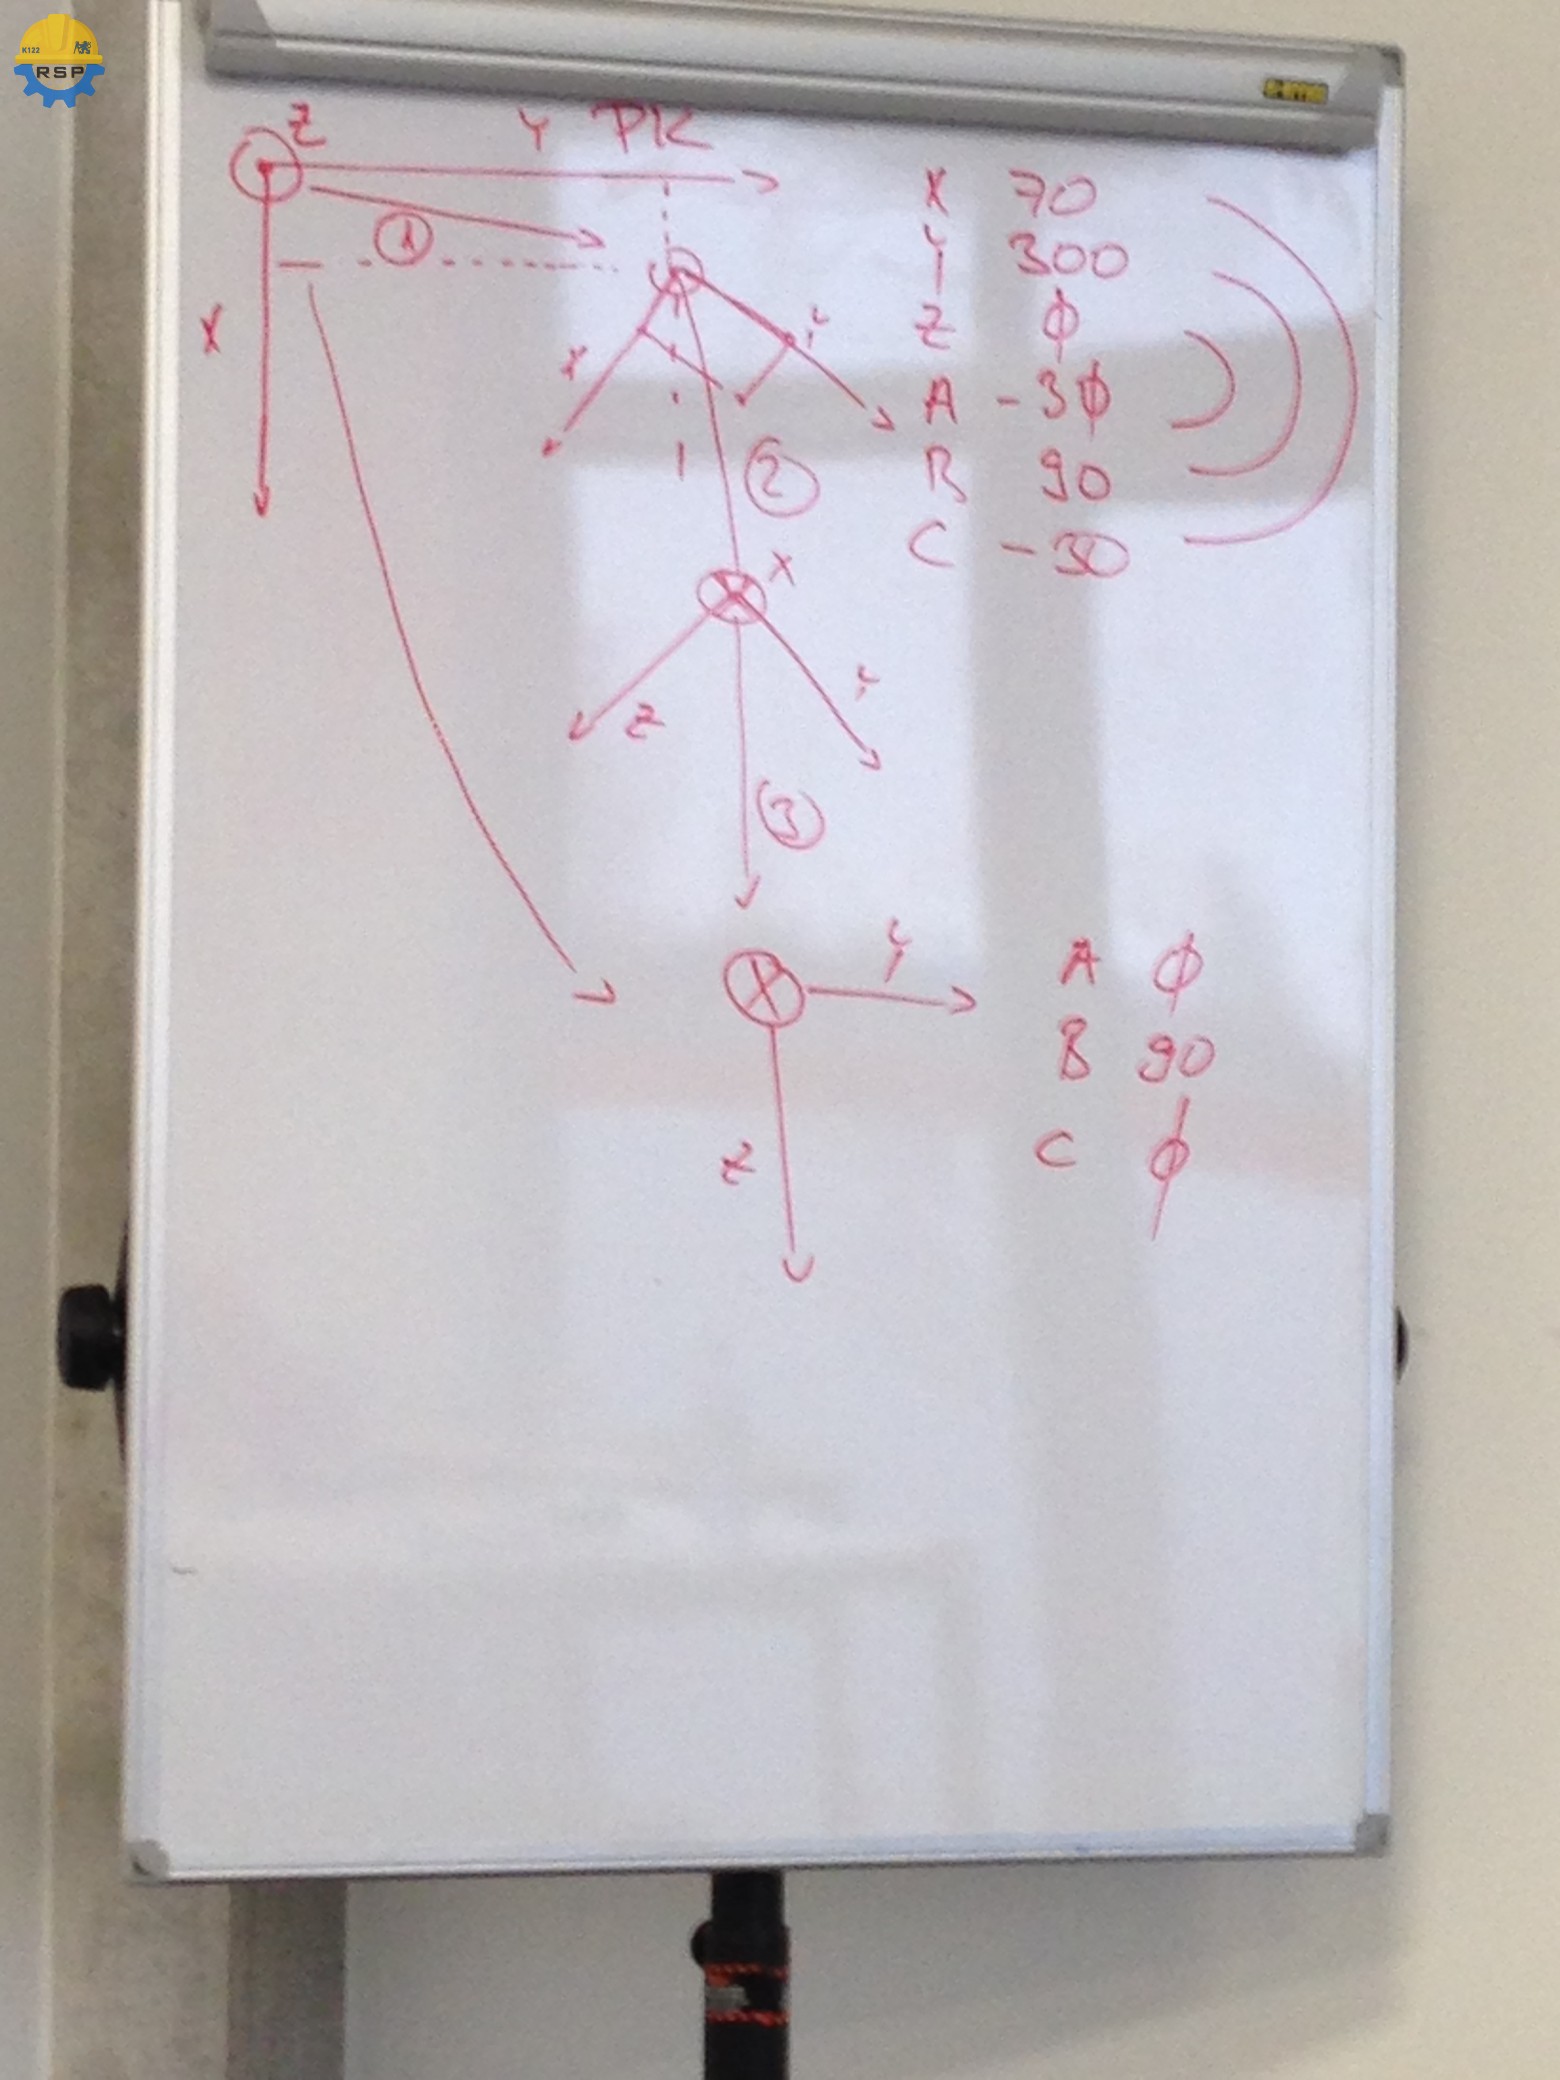 K122
RSP
Z
Y PK
X 70
Y 300
Z ϕ
A -3ϕ
B 90
C -30
1
X
X
Y
2
X
Z
Y
3
X
Y
Z
A ϕ
B 90
C ϕ